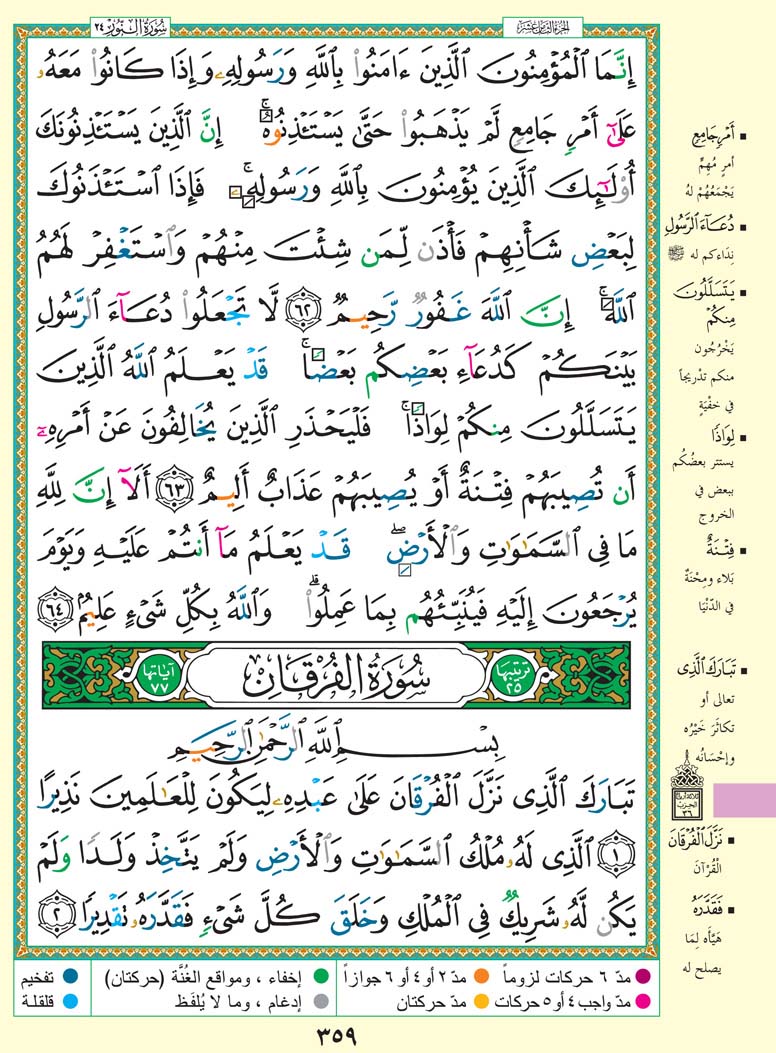 سُورَةُ النُّورِ ٢٤
الجُزءُ الثَّامِنَ عَشَرَ
إِنَّمَا الْمُؤْمِنُونَ الَّذِينَ ءَامَنُوا بِاللَّهِ وَرَسُولِهِۦ وَإِذَا كَانُوا مَعَهُۥ
عَلَىٰٓ أَمْرٍ جَامِعٍ لَّمْ يَذْهَبُوا حَتَّىٰ يَسْتَـْٔذِنُوهُ ۚ إِنَّ الَّذِينَ يَسْتَـْٔذِنُونَكَ
أُوْلَـٰٓئِكَ الَّذِينَ يُؤْمِنُونَ بِاللَّهِ وَرَسُولِهِۦ ۚ فَإِذَا اسْتَـْٔذَنُوكَ
لِبَعْضِ شَأْنِهِمْ فَأْذَن لِّمَن شِئْتَ مِنْهُمْ وَاسْتَغْفِرْ لَهُمُ
اللَّهَ ۚ إِنَّ اللَّهَ غَفُورٌ رَّحِيمٌ ٦٢ لَّا تَجْعَلُوا دُعَآءَ الرَّسُولِ
بَيْنَكُمْ كَدُعَآءِ بَعْضِكُم بَعْضًا ۚ قَدْ يَعْلَمُ اللَّهُ الَّذِينَ
يَتَسَلَّلُونَ مِنكُمْ لِوَاذًا ۚ فَلْيَحْذَرِ الَّذِينَ يُخَالِفُونَ عَنْ أَمْرِهِۦٓ
أَن تُصِيبَهُمْ فِتْنَةٌ أَوْ يُصِيبَهُمْ عَذَابٌ أَلِيمٌ ٦٣ أَلَآ إِنَّ لِلَّهِ
مَا فِى السَّمَـٰوَٰتِ وَالْأَرْضِ ۖ قَدْ يَعْلَمُ مَآ أَنتُمْ عَلَيْهِ وَيَوْمَ
يُرْجَعُونَ إِلَيْهِ فَيُنَبِّئُهُم بِمَا عَمِلُوا ۗ وَاللَّهُ بِكُلِّ شَىْءٍ عَلِيمٌ ٦٤
ترتيبها ٢٥ سُورَةُ الْفُرْقَانِ آياتها ٧٧
بِسْمِ اللَّهِ الرَّحْمَـٰنِ الرَّحِيمِ
تَبَارَكَ الَّذِى نَزَّلَ الْفُرْقَانَ عَلَىٰ عَبْدِهِۦ لِيَكُونَ لِلْعَـٰلَمِينَ نَذِيرًا
١ الَّذِى لَهُۥ مُلْكُ السَّمَـٰوَٰتِ وَالْأَرْضِ وَلَمْ يَتَّخِذْ وَلَدًا وَلَمْ
يَكُن لَّهُۥ شَرِيكٌ فِى الْمُلْكِ وَخَلَقَ كُلَّ شَىْءٍ فَقَدَّرَهُۥ تَقْدِيرًا ٢
▪ أَمْرٍ جَامِعٍ
أمرٍ مُهِمٍّ
يَجْمَعُهُمْ لَهُ
▪ دُعَآءَ الرَّسُولِ
نِدَاءَكم له ﷺ
▪ يَتَسَلَّلُونَ
مِنكُمْ
يَخْرُجُون
منكم تدْريجاً
في خفْيَةٍ
▪ لِوَاذًا
يستتر بعضُكُم
ببعض في
الخروج
▪ فِتْنَةٌ
بَلاء ومِحْنَةٌ
في الدّنْيَا
▪ تَبَارَكَ الَّذِى
تعالى أو
تكاثَرَ خَيْرُه
وإحْسَانُه
الحِزْب
٣٦
▪ نَزَّلَ الْفُرْقَانَ
القُرْآنَ
▪ فَقَدَّرَهُ
هَيَّأَه لِمَا
يصلح له
مدّ ٦ حركات لزوماً مدّ ٢ أو ٤ أو ٦ جوازاً إخفاء ، ومواقع الغُنَّة (حركتان) تفخيم
مدّ واجب ٤ أو ٥ حركات مدّ حركتان إدغام ، وما لا يُلفَظ قلقلة
٣٥٩